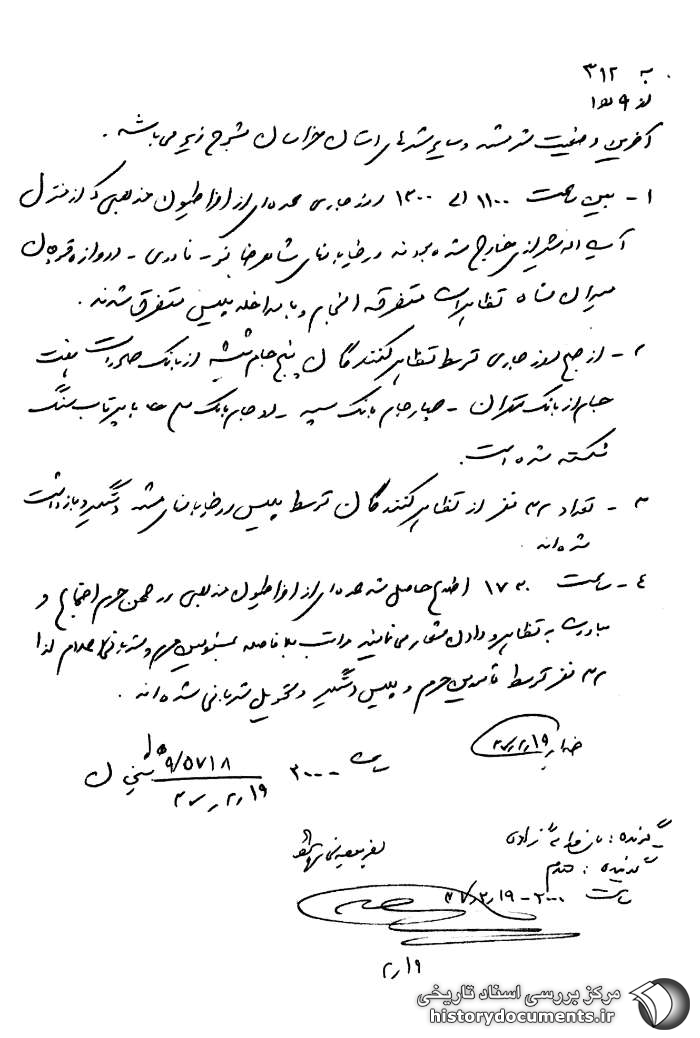 به ۳۱۲
از ۹ هـ ۱
آخرین وضعیت شهر مشهد و سایر شهرهای استان خراسان بشرح زیر می‌باشد.
۱- بین ساعت ۱۱۰۰ الی ۱۳۰۰ روز جاری عده‌ای از افراطیون مذهبی که از منزل
آیت اله شیرازی خارج شده بودند در خیابانهای شاهرضا نو - نادری - دروازه قوچان
میدان شاه تظاهرات متفرقه انجام و با مداخله پلیس متفرق شدند.
۲- از صبح روز جاری توسط تظاهرکنندگان پنج جام شیشه از بانک صادرات هفت
جام از بانک تهران - چهار جام بانک سپه - دو جام بانک با پرتاب سنگ
شکسته شده است.
۳- تعداد ۳۲ نفر از تظاهرکنندگان توسط پلیس در خیابانهای مشهد دستگیر و بازداشت
شده‌اند.
۴- ساعت ۱۷۳۰ اطلاع حاصل شد عده‌ای از افراطیون مذهبی در صحن حرم اجتماع و
مبادرت به تظاهر و دادن شعار می‌نمایند مراتب بلافاصله بمسئولین حرم و شهربانی اعلام لذا
۳۲ نفر توسط مامورین حرم و پلیس دستگیر و تحویل شهربانی شده‌اند.
۳۷٫۲٫۱۹
۹/۵۷۱۸ ه‍ ۱
۳۷٫۲٫۱۹
ساعت ۲۰۰۰
گیرنده:
گوینده:
ساعت ۲۰۰۰-۳۷٫۲٫۱۹
۲٫۱۹
مرکز بررسی اسناد تاریخی
historydocuments.ir